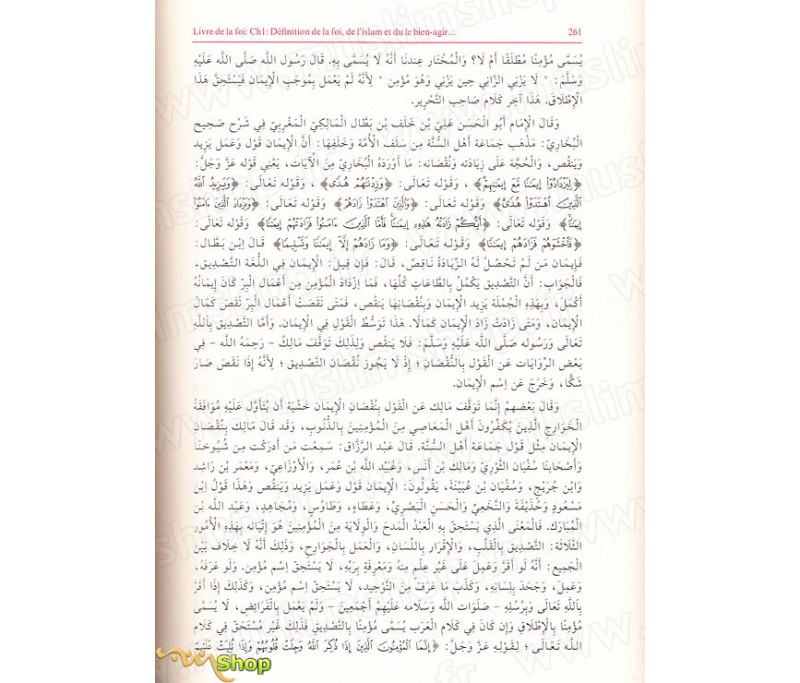 Livre de la foi: Ch1: Définition de la foi, de l'islam et du le bien-agir... 261
يُسَمَّى مُؤْمِنًا مُطْلَقًا أَمْ لَا؟ وَالْمُخْتَار عِنْدنَا أَنَّهُ لَا يُسَمَّى بِهِ. قَالَ رَسُول اللَّه صَلَّى اللَّه عَلَيْهِ
وَسَلَّمَ: " لَا يَزْنِي الزَّانِي حِين يَزْنِي وَهُوَ مُؤْمِن " لِأَنَّهُ لَمْ يَعْمَل بِمُوجَبِ الْإِيمَان فَيَسْتَحِقّ هَذَا
الْإِطْلَاق. هَذَا آخِر كَلَام صَاحِب التَّحْرِير.
وَقَالَ الْإِمَام أَبُو الْحَسَن عَلِيّ بْن خَلَف بْن بَطَّال الْمَالِكِيّ الْمَغْرِبِيّ فِي شَرْح صَحِيح
الْبُخَارِيّ: مَذْهَب جَمَاعَة أَهْل السُّنَّة مِنْ سَلَف الْأُمَّة وَخَلَفهَا: أَنَّ الْإِيمَان قَوْل وَعَمَل يَزِيد
وَيَنْقُص، وَالْحُجَّة عَلَى زِيَادَته وَنُقْصَانه: مَا أَوْرَدَهُ الْبُخَارِيّ مِنْ الْآيَات، يَعْنِي قَوْله عَزَّ وَجَلَّ:
﴿لِيَزْدَادُوٓا۟ إِيمَٰنًا مَّعَ إِيمَٰنِهِمْ﴾ ، وَقَوْله تَعَالَى: ﴿وَزِدْنَٰهُمْ هُدًى﴾ ، وَقَوْله تَعَالَى: ﴿وَيَزِيدُ ٱللَّهُ
ٱلَّذِينَ ٱهْتَدَوْا۟ هُدًى﴾ وَقَوْله تَعَالَى: ﴿وَٱلَّذِينَ ٱهْتَدَوْا۟ زَادَهُمْ﴾ وَقَوْله تَعَالَى: ﴿وَيَزْدَادَ ٱلَّذِينَ ءَامَنُوٓا۟
إِيمَٰنًا﴾ وَقَوْله تَعَالَى: ﴿أَيُّكُمْ زَادَتْهُ هَٰذِهِۦٓ إِيمَٰنًا فَأَمَّا ٱلَّذِينَ ءَامَنُوا۟ فَزَادَتْهُمْ إِيمَٰنًا﴾ وَقَوْله تَعَالَى:
﴿فَٱخْشَوْهُمْ فَزَادَهُمْ إِيمَٰنًا﴾ وَقَوْله تَعَالَى: ﴿وَمَا زَادَهُمْ إِلَّآ إِيمَٰنًا وَتَسْلِيمًا﴾ قَالَ اِبْن بَطَّال:
فَإِيمَان مَنْ لَمْ تَحْصُل لَهُ الزِّيَادَة نَاقِص. قَالَ: فَإِنْ قِيلَ: الْإِيمَان فِي اللُّغَة التَّصْدِيق،
فَالْجَوَاب: أَنَّ التَّصْدِيق يَكْمُل بِالطَّاعَاتِ كُلّهَا، فَمَا اِزْدَادَ الْمُؤْمِن مِنْ أَعْمَال الْبِرّ كَانَ إِيمَانه
أَكْمَل، وَبِهَذِهِ الْجُمْلَة يَزِيد الْإِيمَان وَبِنُقْصَانِهَا يَنْقُص، فَمَتَى نَقَصَتْ أَعْمَال الْبِرّ نَقَصَ كَمَال
الْإِيمَان، وَمَتَى زَادَتْ زَادَ الْإِيمَان كَمَالًا. هَذَا تَوَسُّط الْقَوْل فِي الْإِيمَان. وَأَمَّا التَّصْدِيق بِاَللَّهِ
تَعَالَى وَرَسُوله صَلَّى اللَّه عَلَيْهِ وَسَلَّمَ: فَلَا يَنْقُص وَلِذَلِكَ تَوَقَّفَ مَالِكٌ – رَحِمَهُ اللَّه – فِي
بَعْض الرِّوَايَات عَنْ الْقَوْل بِالنُّقْصَانِ ؛ إِذْ لَا يَجُوز نُقْصَان التَّصْدِيق ؛ لِأَنَّهُ إِذَا نَقَصَ صَارَ
شَكًّا، وَخَرَجَ عَنْ اِسْم الْإِيمَان.
وَقَالَ بَعْضهمْ إِنَّمَا تَوَقَّفَ مَالِك عَنْ الْقَوْل بِنُقْصَانِ الْإِيمَان خَشْيَة أَنْ يُتَأَوَّل عَلَيْهِ مُوَافَقَة
الْخَوَارِج الَّذِينَ يُكَفِّرُونَ أَهْل الْمَعَاصِي مِنْ الْمُؤْمِنِينَ بِالذُّنُوبِ، وَقَدْ قَالَ مَالِك بِنُقْصَانِ
الْإِيمَان مِثْل قَوْل جَمَاعَة أَهْل السُّنَّة. قَالَ عَبْد الرَّزَّاق: سَمِعْت مَنْ أَدْرَكْت مِنْ شُيُوخنَا
وَأَصْحَابنَا سُفْيَان الثَّوْرِيّ وَمَالِك بْن أَنَس، وَعُبَيْد اللَّه بْن عُمَر، وَالْأَوْزَاعِيّ، وَمَعْمَر بْن رَاشِد
وَابْن جُرَيْجٍ، وَسُفْيَان بْن عُيَيْنَةَ، يَقُولُونَ: الْإِيمَان قَوْل وَعَمَل يَزِيد وَيَنْقُص وَهَذَا قَوْل اِبْن
مَسْعُود وَحُذَيْفَة وَالنَّخَعِيِّ وَالْحَسَن الْبَصْرِيّ، وَعَطَاء، وَطَاوُس، وَمُجَاهِد، وَعَبْد اللَّه بْن
الْمُبَارَك. فَالْمَعْنَى الَّذِي يَسْتَحِقّ بِهِ الْعَبْدُ الْمَدْحَ وَالْوِلَايَة مِنْ الْمُؤْمِنِينَ هُوَ إِتْيَانه بِهَذِهِ الْأُمُور
الثَّلَاثَة: التَّصْدِيق بِالْقَلْبِ، وَالْإِقْرَار بِاللِّسَانِ، وَالْعَمَل بِالْجَوَارِحِ، وَذَلِكَ أَنَّهُ لَا خِلَاف بَيْن
الْجَمِيع: أَنَّهُ لَوْ أَقَرَّ وَعَمِلَ عَلَى غَيْر عِلْم مِنْهُ وَمَعْرِفَة بِرَبِّهِ، لَا يَسْتَحِقّ اِسْم مُؤْمِن. وَلَوْ عَرَفَهُ،
وَعَمِلَ، وَجَحَدَ بِلِسَانِهِ، وَكَذَّبَ مَا عَرَفَ مِنْ التَّوْحِيد، لَا يَسْتَحِقّ اِسْم مُؤْمِن، وَكَذَلِكَ إِذَا أَقَرَّ
بِاَللَّهِ تَعَالَى وَبِرُسُلِهِ – صَلَوَات اللَّه وَسَلَامه عَلَيْهِمْ أَجْمَعِينَ – وَلَمْ يَعْمَل بِالْفَرَائِضِ، لَا يُسَمَّى
مُؤْمِنًا بِالْإِطْلَاقِ وَإِنْ كَانَ فِي كَلَام الْعَرَب يُسَمَّى مُؤْمِنًا بِالتَّصْدِيقِ فَذَلِكَ غَيْر مُسْتَحَقّ فِي كَلَام
اللَّه تَعَالَى ؛ لِقَوْلِهِ عَزَّ وَجَلَّ: ﴿إِنَّمَا ٱلْمُؤْمِنُونَ ٱلَّذِينَ إِذَا ذُكِرَ ٱللَّهُ وَجِلَتْ قُلُوبُهُمْ وَإِذَا تُلِيَتْ عَلَيْهِمْ
Shop